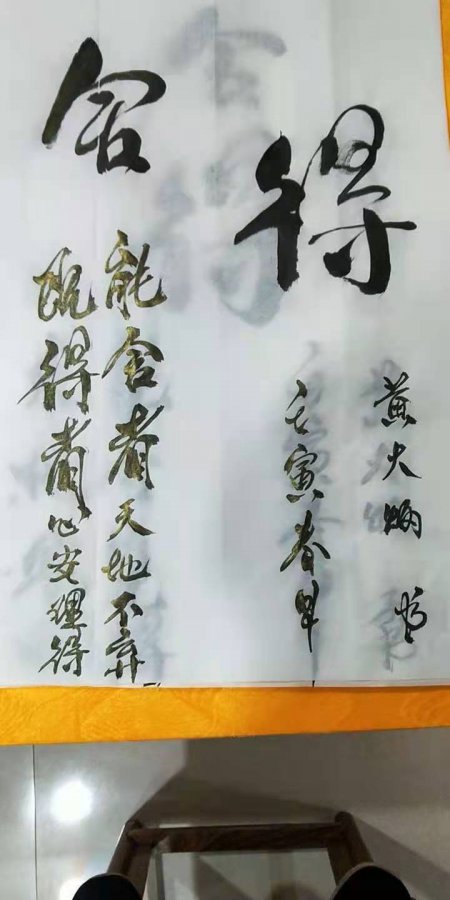 舍得
能舍者天地不弃
既得者心安理得
壬寅春早
黄火炳书